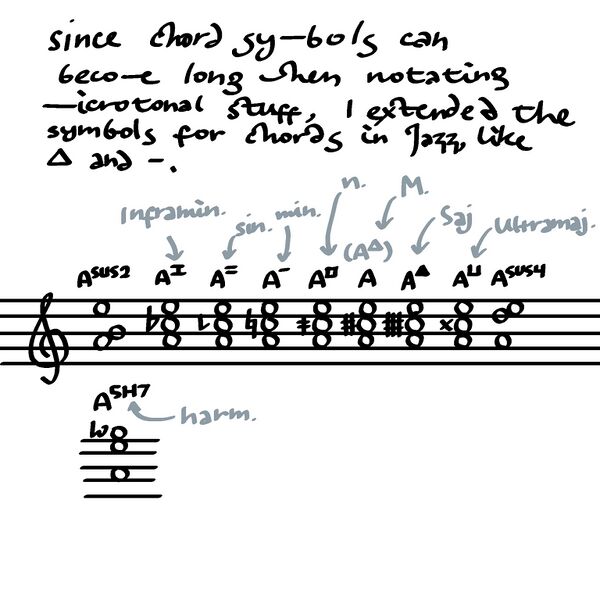 since chord sy—bols can
beco—e long when notating
—icrotonal stuff, I extended the
symbols for chords in Jazz, like
Δ and -.
n. M.
Inframin. sin. min. Saj Ultramaj.
(A^Δ)
Asus2 A^I A^= A^- A^□ A A^Δ A^⊔ Asus4
A5H7
harm.